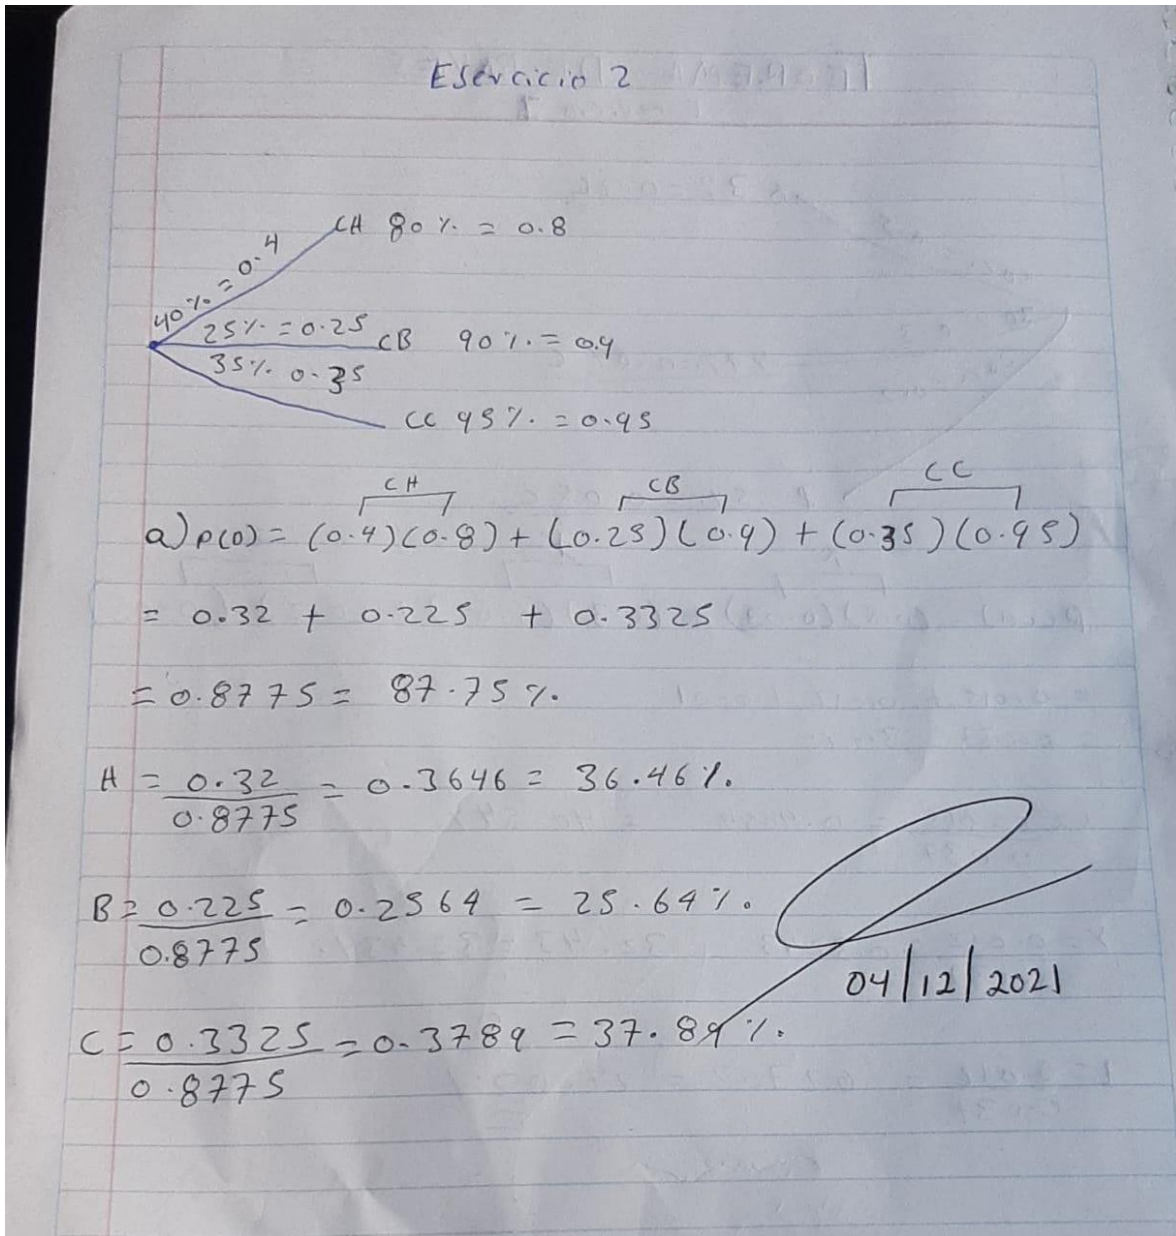 Esercicio 2
40% = 0.4
CH 80% = 0.8
25% = 0.25 CB 90% = 0.9
35% 0.35
CC 95% = 0.95
CH CB CC
a) P(0) = (0.4)(0.8) + (0.25)(0.9) + (0.35)(0.95)
= 0.32 + 0.225 + 0.3325
= 0.8775 = 87.75%.
H = 0.32 / 0.8775 = 0.3646 = 36.46%.
B = 0.225 / 0.8775 = 0.2564 = 25.64%.
04/12/2021
C = 0.3325 / 0.8775 = 0.3789 = 37.89%.